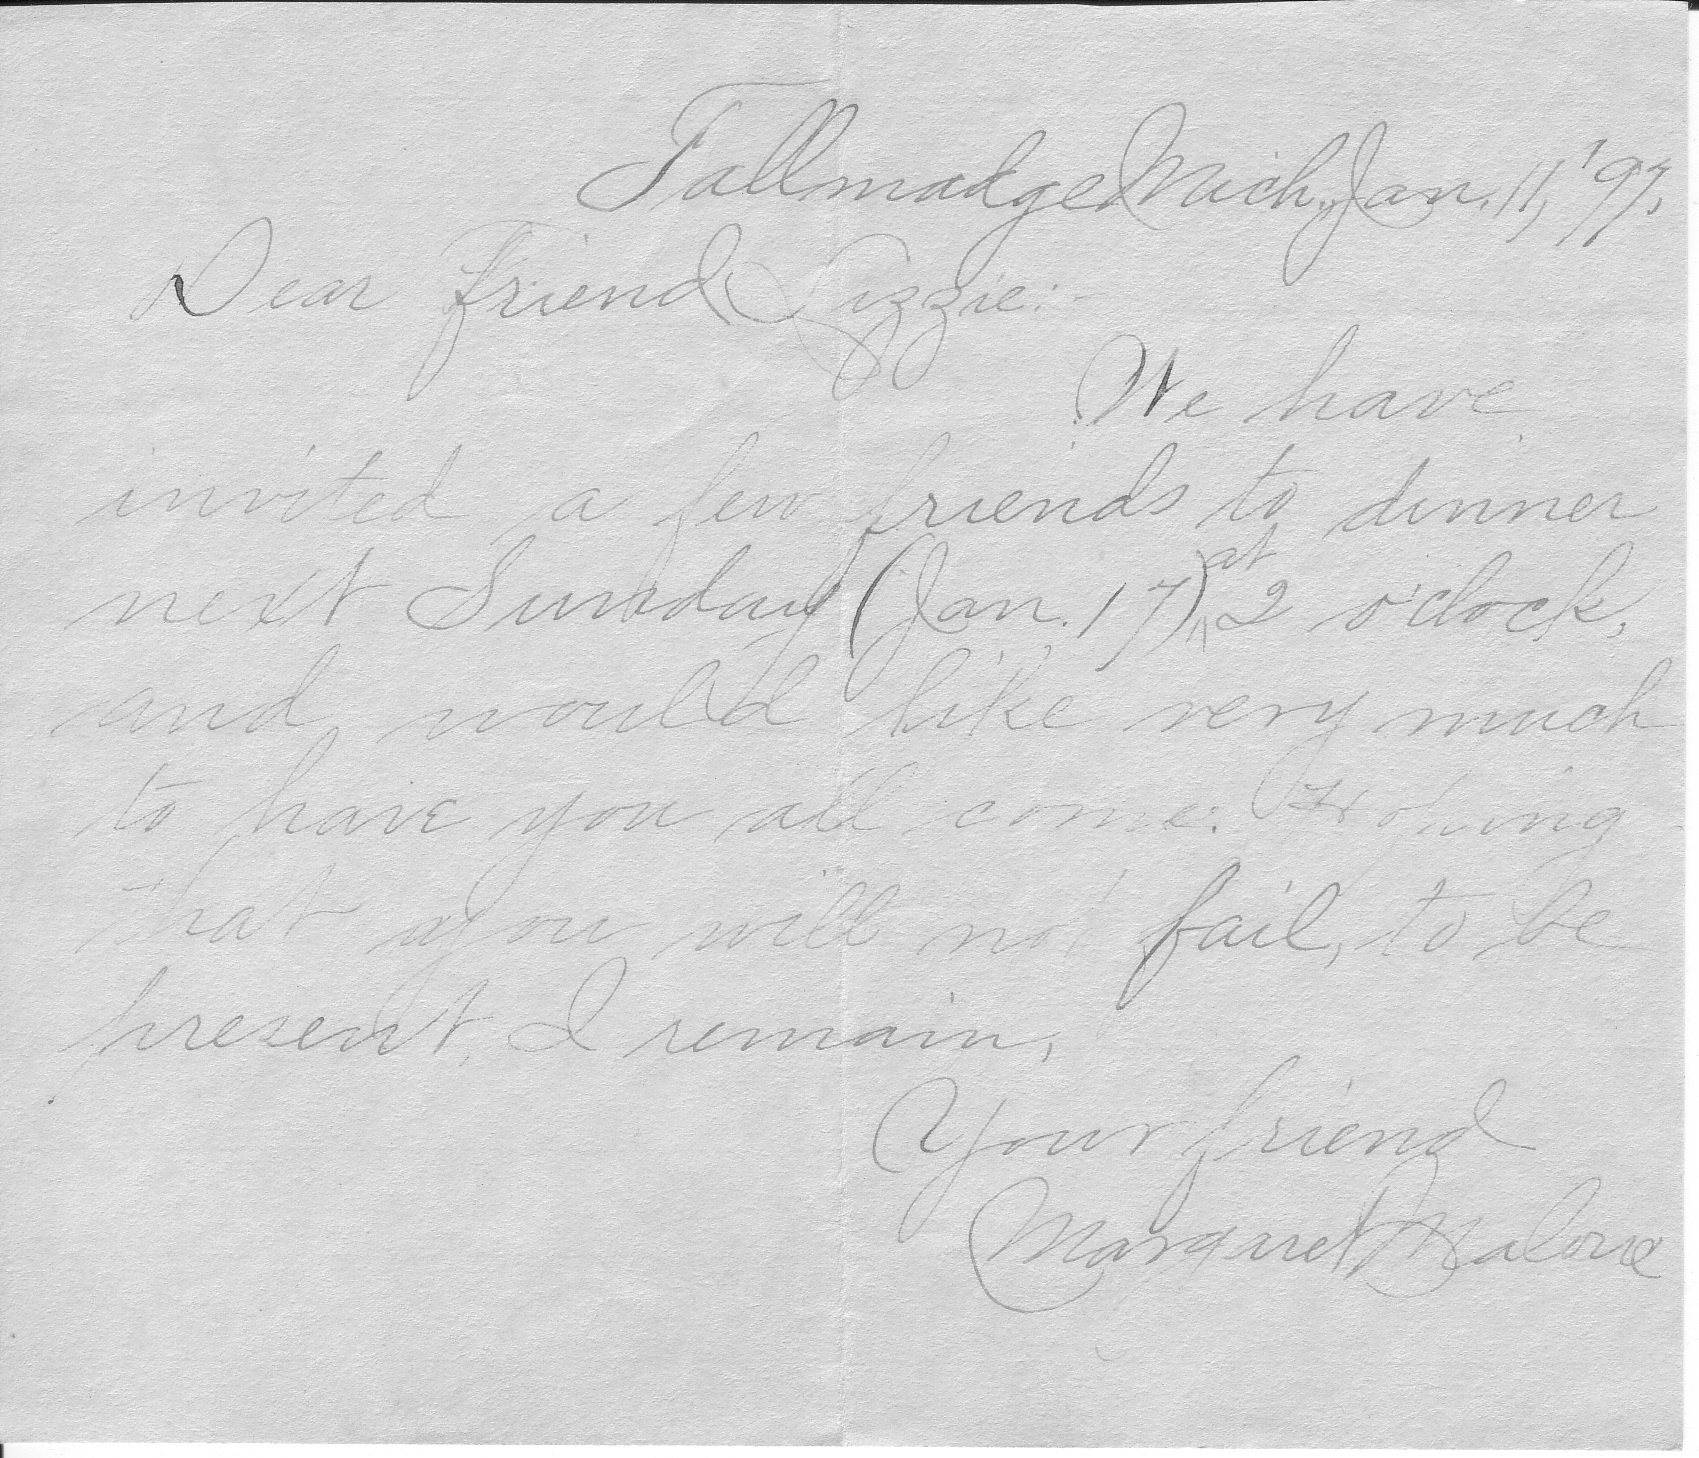 Tallmadge Mich. Jan. 11, '97.
Dear Friend Lizzie:-
We have
invited a few friends to dinner
next Sunday (Jan. 17) at 2 o'clock,
and would like very much
to have you all come. Hoping
that you will not fail, to be
present, I remain,
Your friend
Margaret Malone